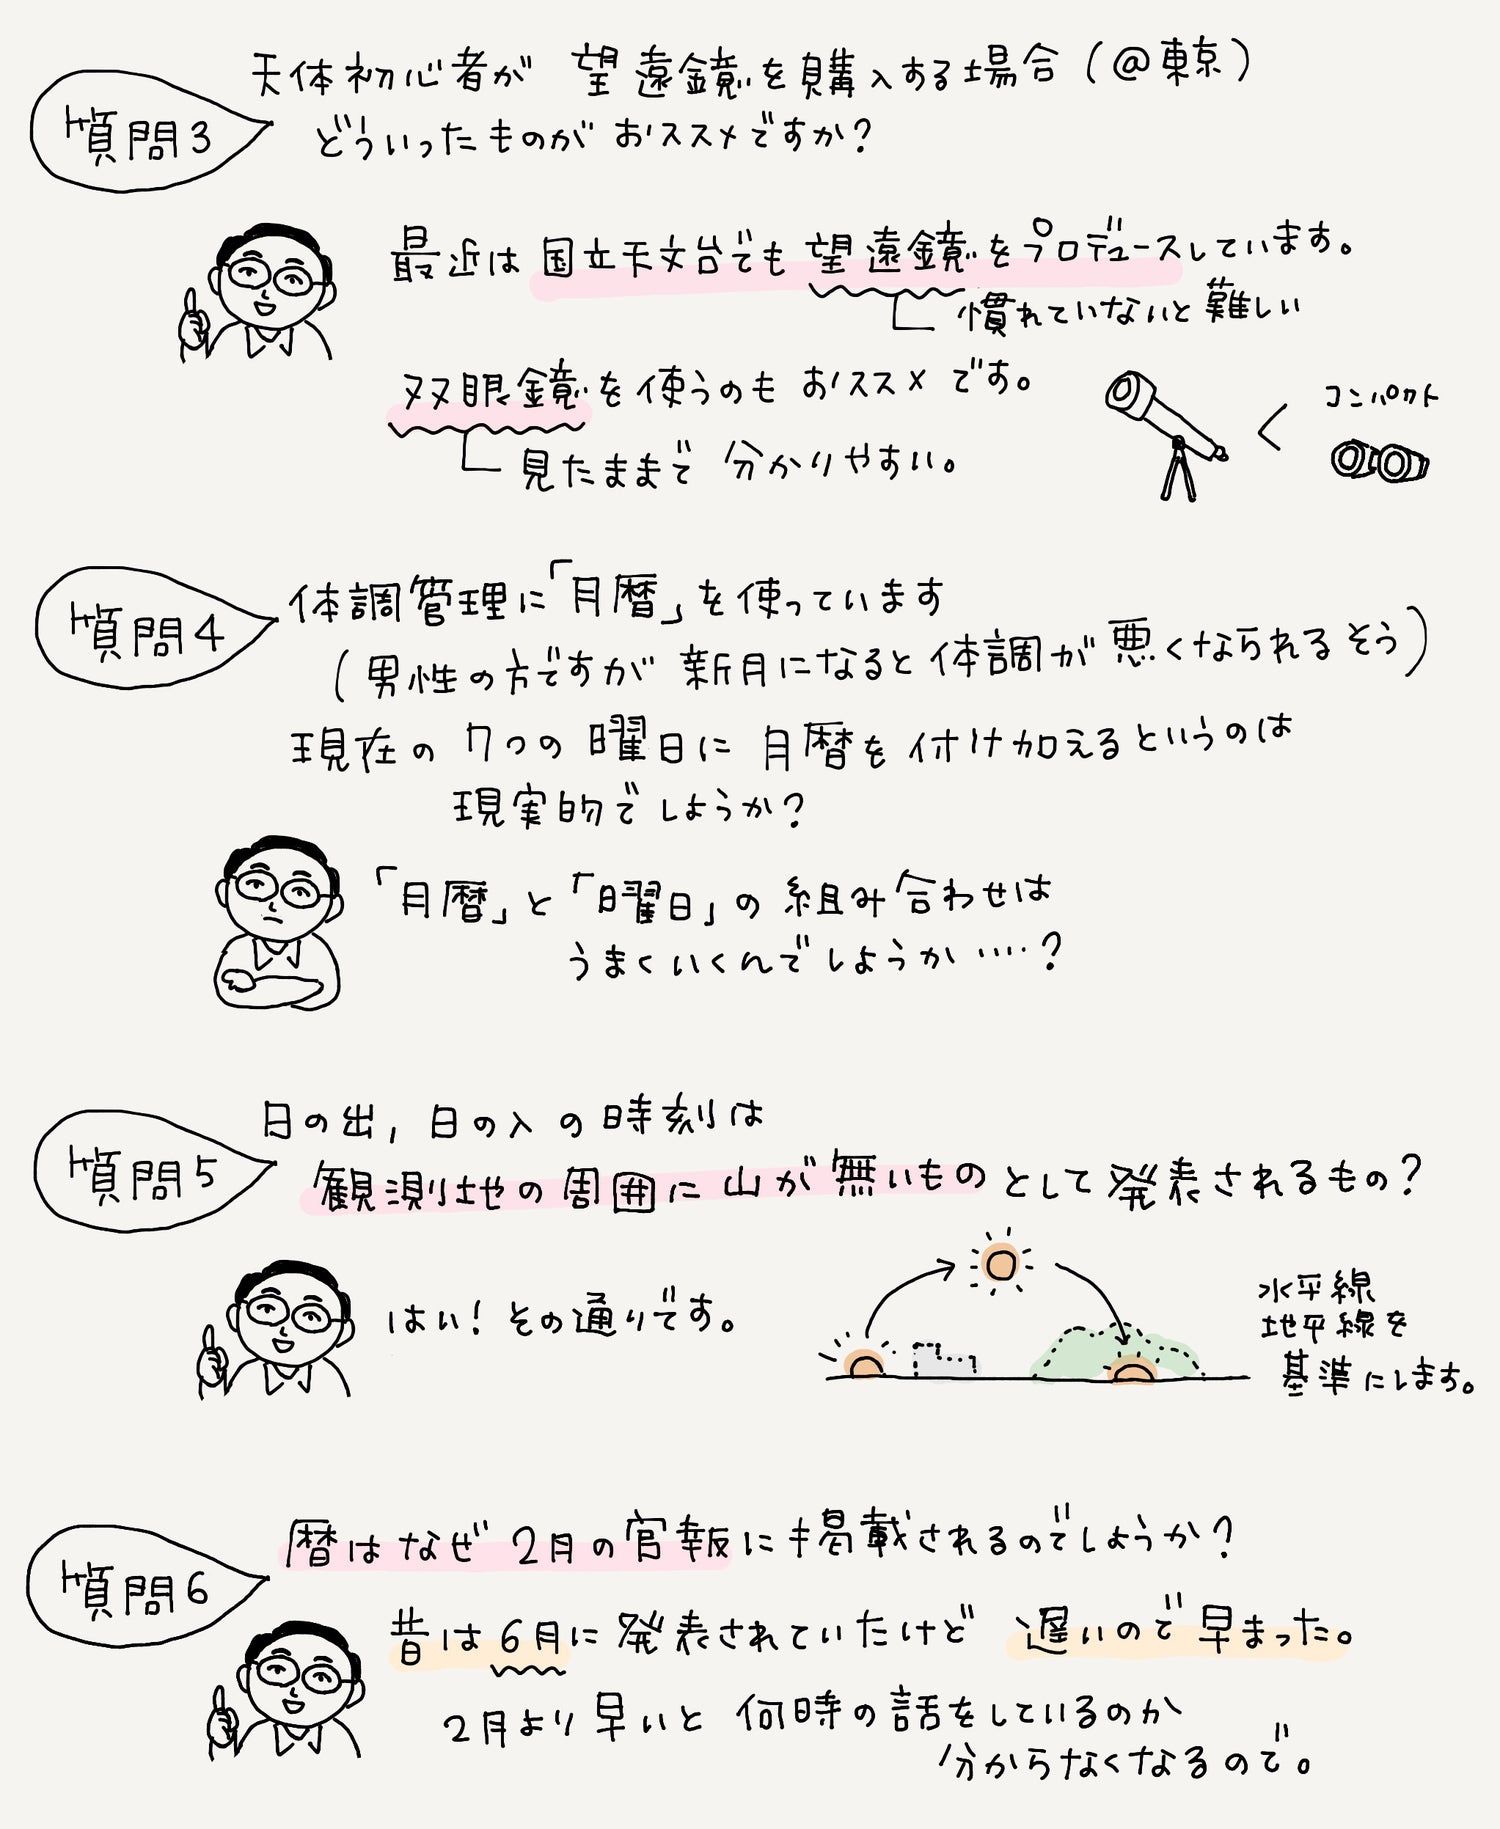 質問3
天体初心者が 望遠鏡を購入する場合(@東京)
どういったものが おススメですか?
最近は国立天文台でも望遠鏡をプロデュースしています。
慣れていないと難しい
双眼鏡を使うのも おススメです。
見たままで 分かりやすい。
コンパクト
質問4
体調管理に「月暦」を使っています
(男性の方ですが 新月になると体調が悪くなられるそう)
現在の 7つの曜日に 月暦を付け加えるというのは
現実的でしょうか?
「月暦」と「曜日」の組み合わせは
うまくいくんでしょうか‥‥?
質問5
日の出,日の入の時刻は
観測地の周囲に山が無いものとして発表されるもの?
はい!その通りです。
水平線
地平線を
基準にします。
質問6
暦はなぜ 2月の官報に掲載されるのでしょうか?
昔は6月に発表されていたけど 遅いので早まった。
2月より早いと 何時の話をしているのか
分からなくなるので。